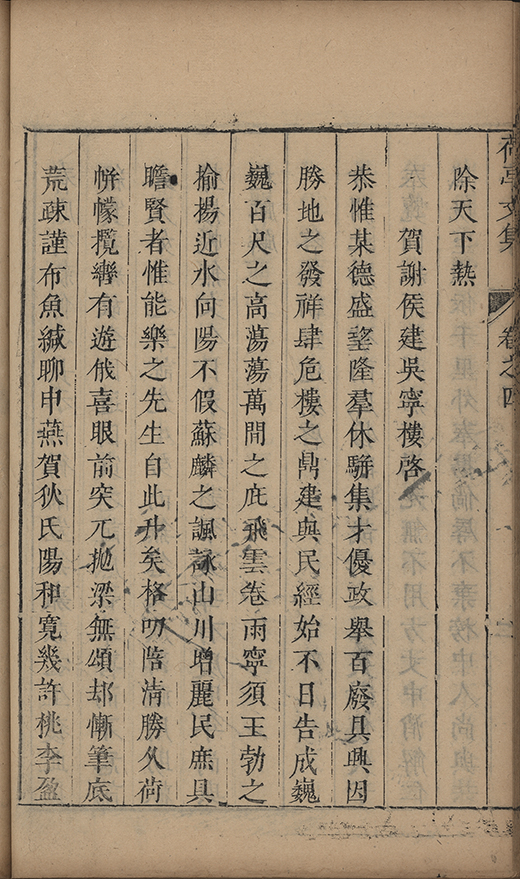 荷亭文集
卷之四
除天下熱
賀謝侯建吳寧樓啓
恭惟某德盛望隆羣休駢集才優政舉百廢具興因
勝地之發祥肆危樓之鼎建與民經始不日告成巍
巍百尺之高蕩蕩萬間之庇飛雲卷雨寧須王勃之
揄揚近水向陽不假蘇麟之諷詠山川增麗民庶具
瞻賢者惟能樂之先生自此升矣格叨陪清勝久荷
帡幪攬轡有遊俄喜眼前突兀拋梁無頌却慚筆底
荒疎謹布魚緘聊申燕賀狄氏陽和寬幾許桃李盈